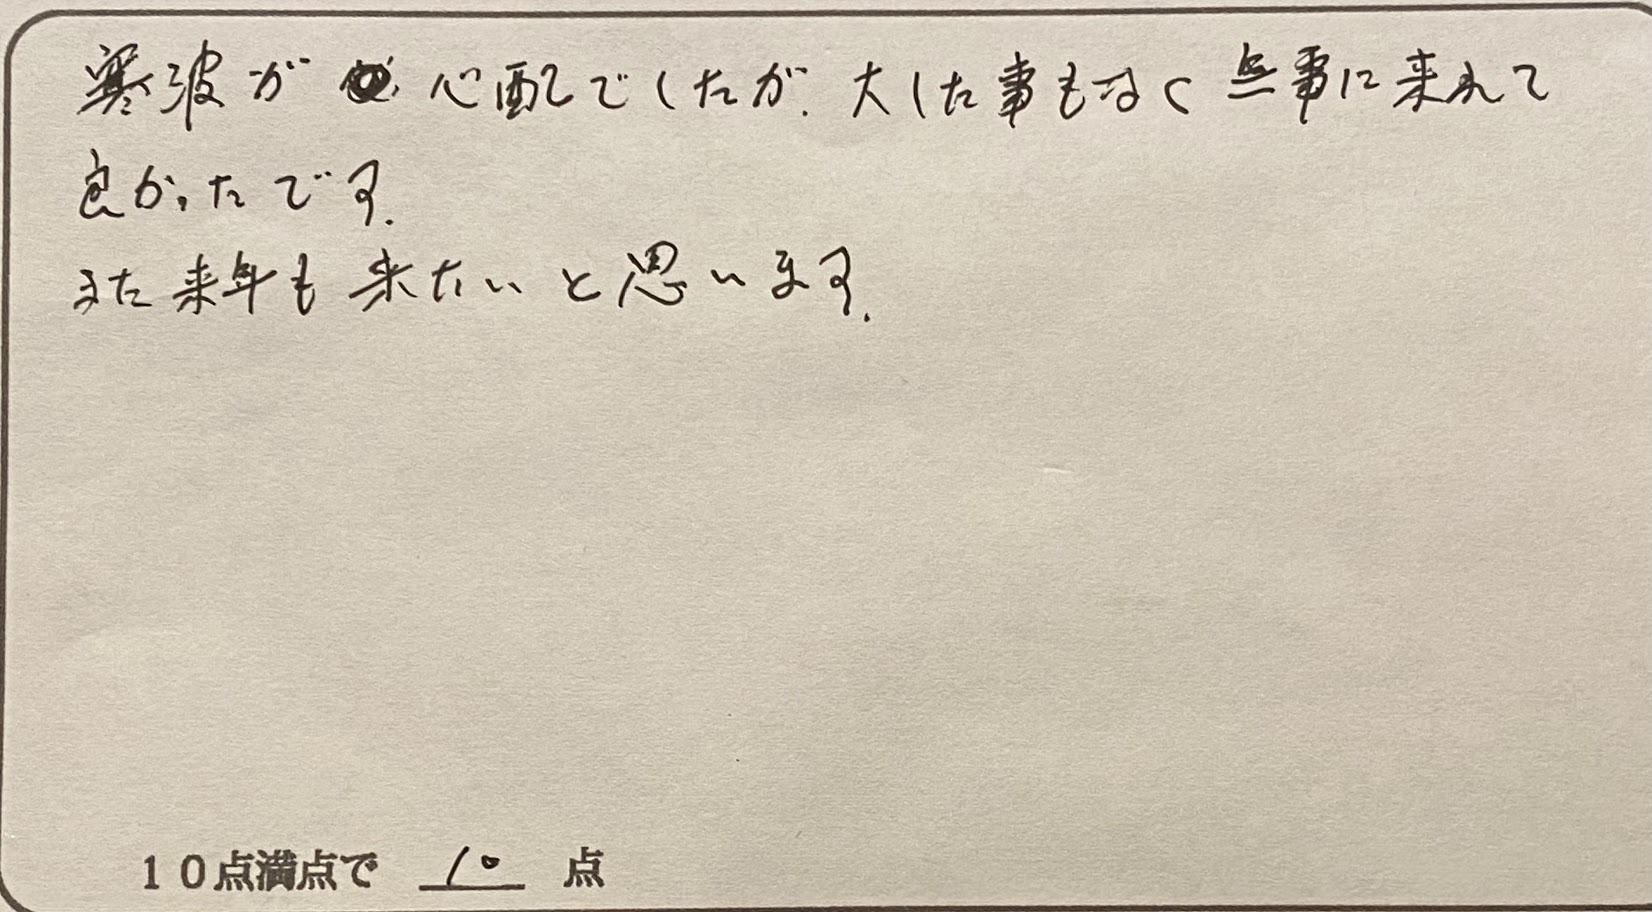 寒波が心配でしたが、大した事もなく無事に来れて
良かったです。
また来年も来たいと思います。
10点満点で 10 点